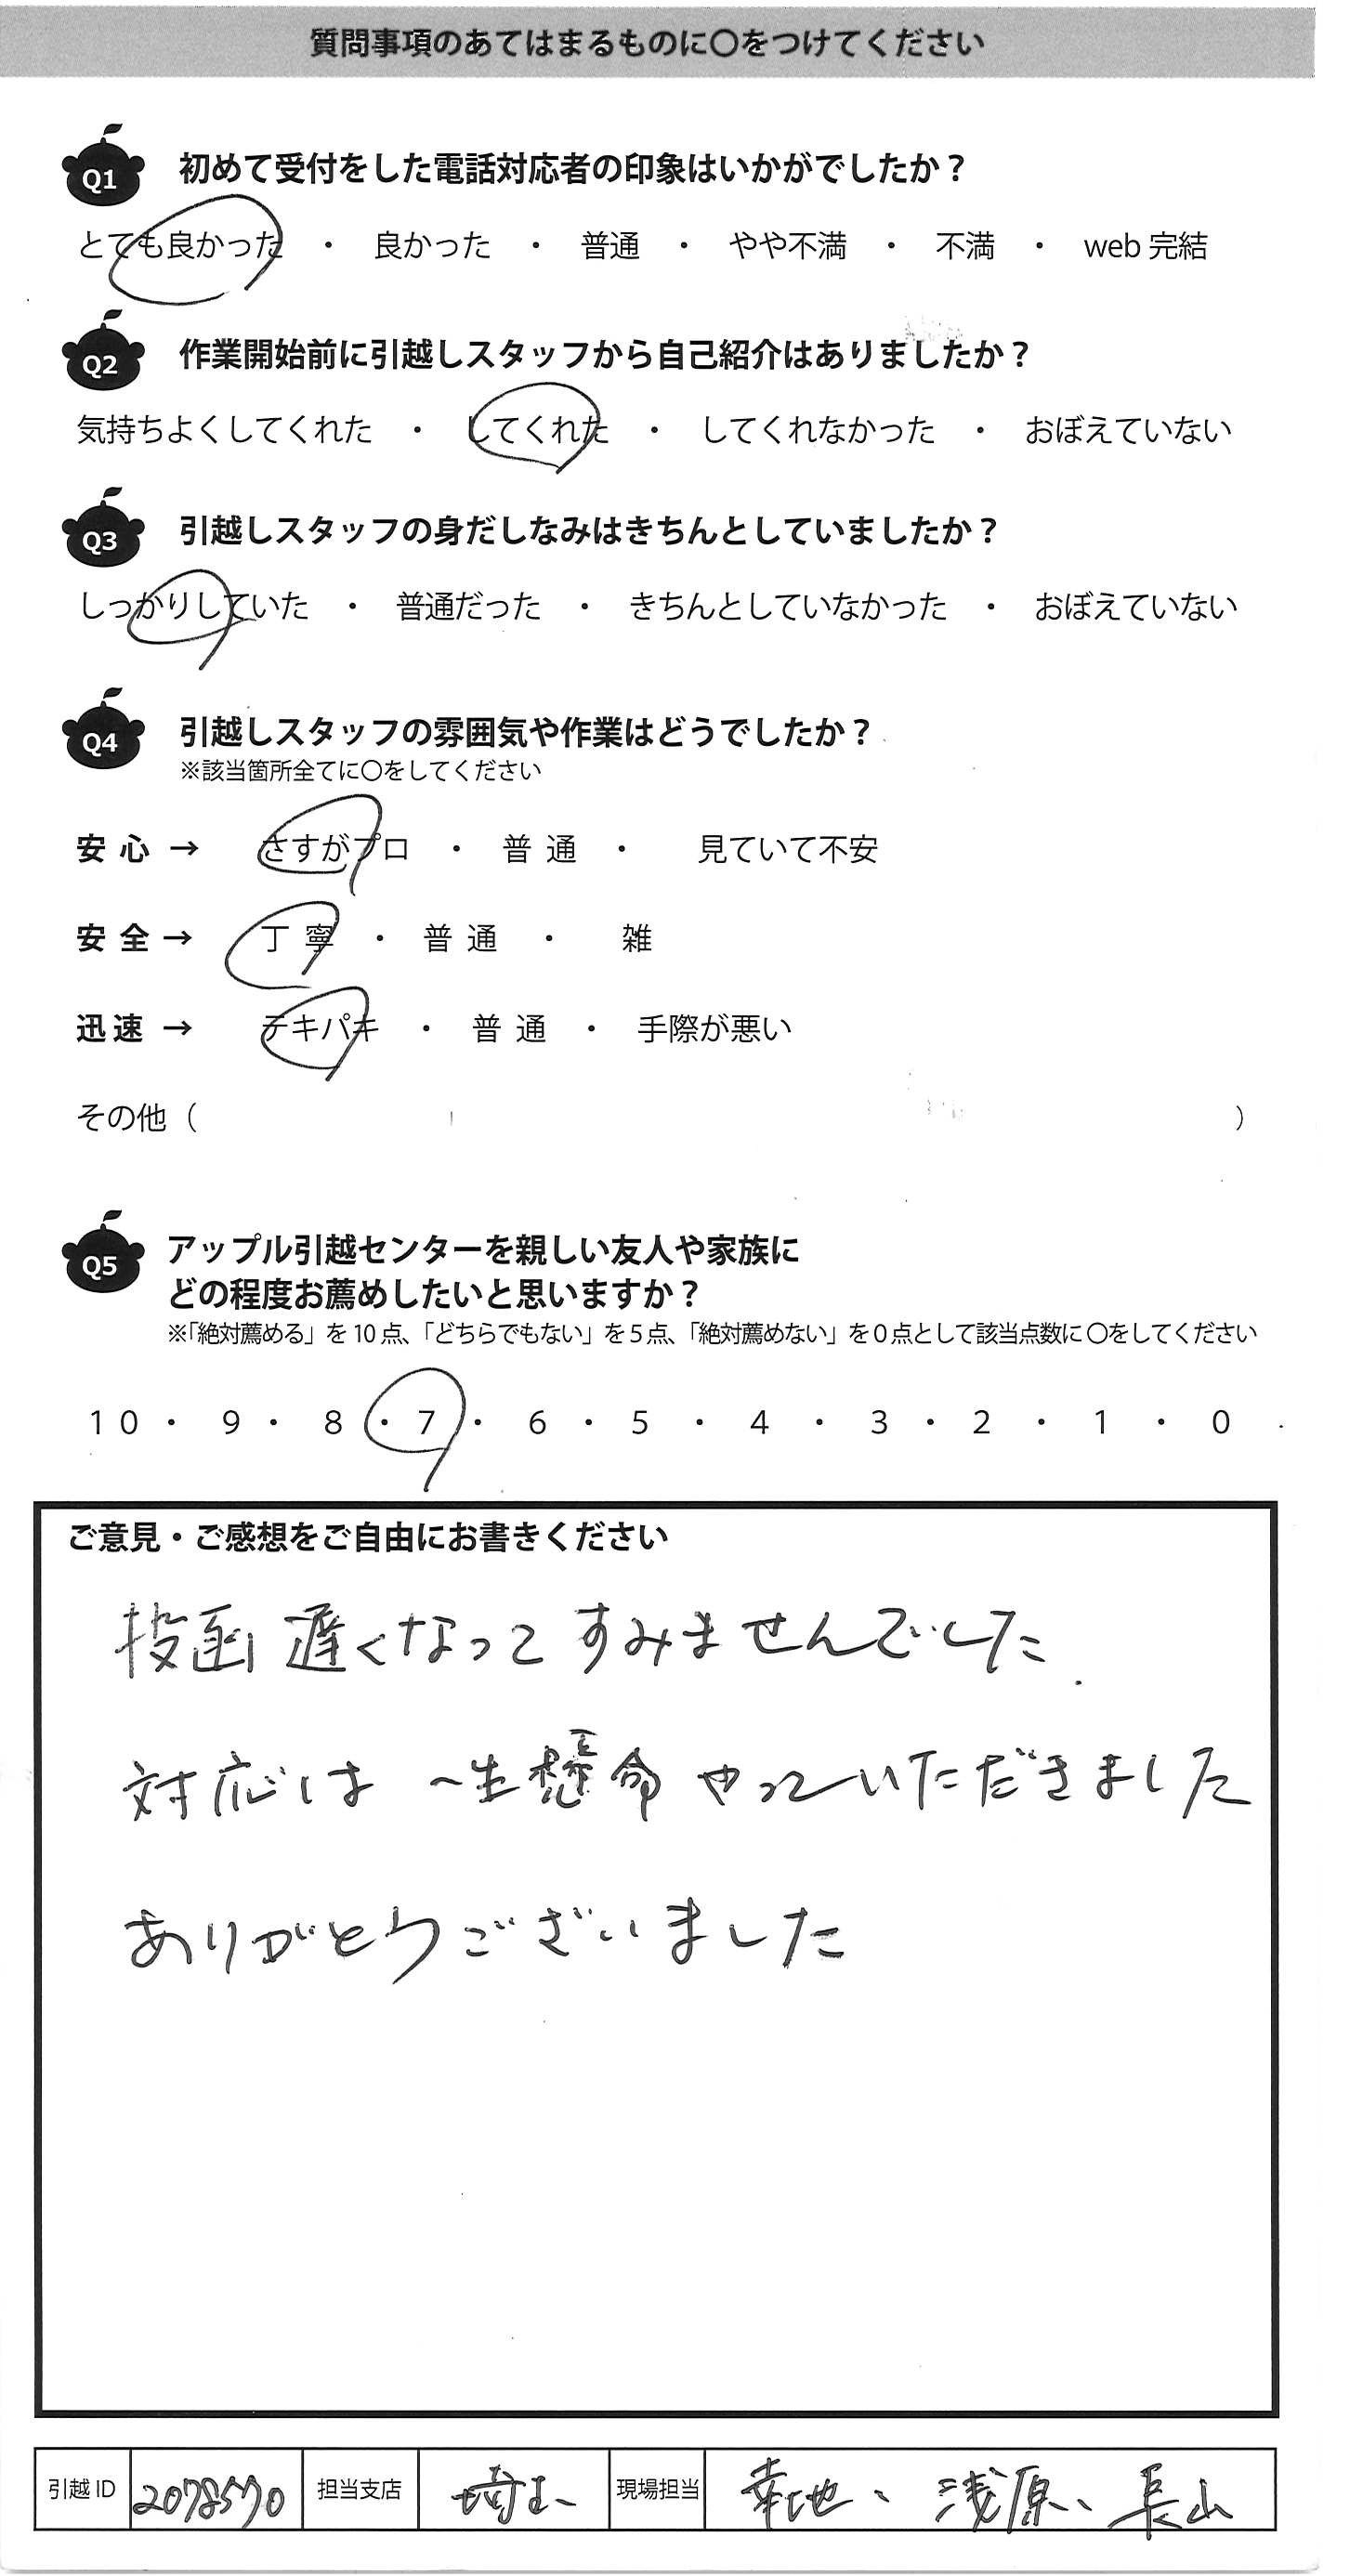 質問事項のあてはまるものに〇をつけてください
Q1 初めて受付をした電話対応者の印象はいかがでしたか？
とても良かった ・ 良かった ・ 普通 ・ やや不満 ・ 不満 ・ web 完結
Q2 作業開始前に引越しスタッフから自己紹介はありましたか？
気持ちよくしてくれた ・ してくれた ・ してくれなかった ・ おぼえていない
Q3 引越しスタッフの身だしなみはきちんとしていましたか？
しっかりしていた ・ 普通だった ・ きちんとしていなかった ・ おぼえていない
Q4 引越しスタッフの雰囲気や作業はどうでしたか？
※該当箇所全てに〇をしてください
安心 → さすがプロ ・ 普通 ・ 見ていて不安
安全 → 丁寧 ・ 普通 ・ 雑
迅速 → テキパキ ・ 普通 ・ 手際が悪い
その他（ ）
Q5 アップル引越センターを親しい友人や家族に
どの程度お薦めしたいと思いますか？
※「絶対薦める」を 10 点、「どちらでもない」を 5 点、「絶対薦めない」を 0 点として該当点数に 〇をしてください
10 ・ 9 ・ 8 ・ 7 ・ 6 ・ 5 ・ 4 ・ 3 ・ 2 ・ 1 ・ 0
ご意見・ご感想をご自由にお書きください
投函遅くなってすみませんでした
対応は一生懸命やっていただきました
ありがとうございました
引越 ID 2078570 担当支店 埼玉 現場担当 幸地、浅原、長山